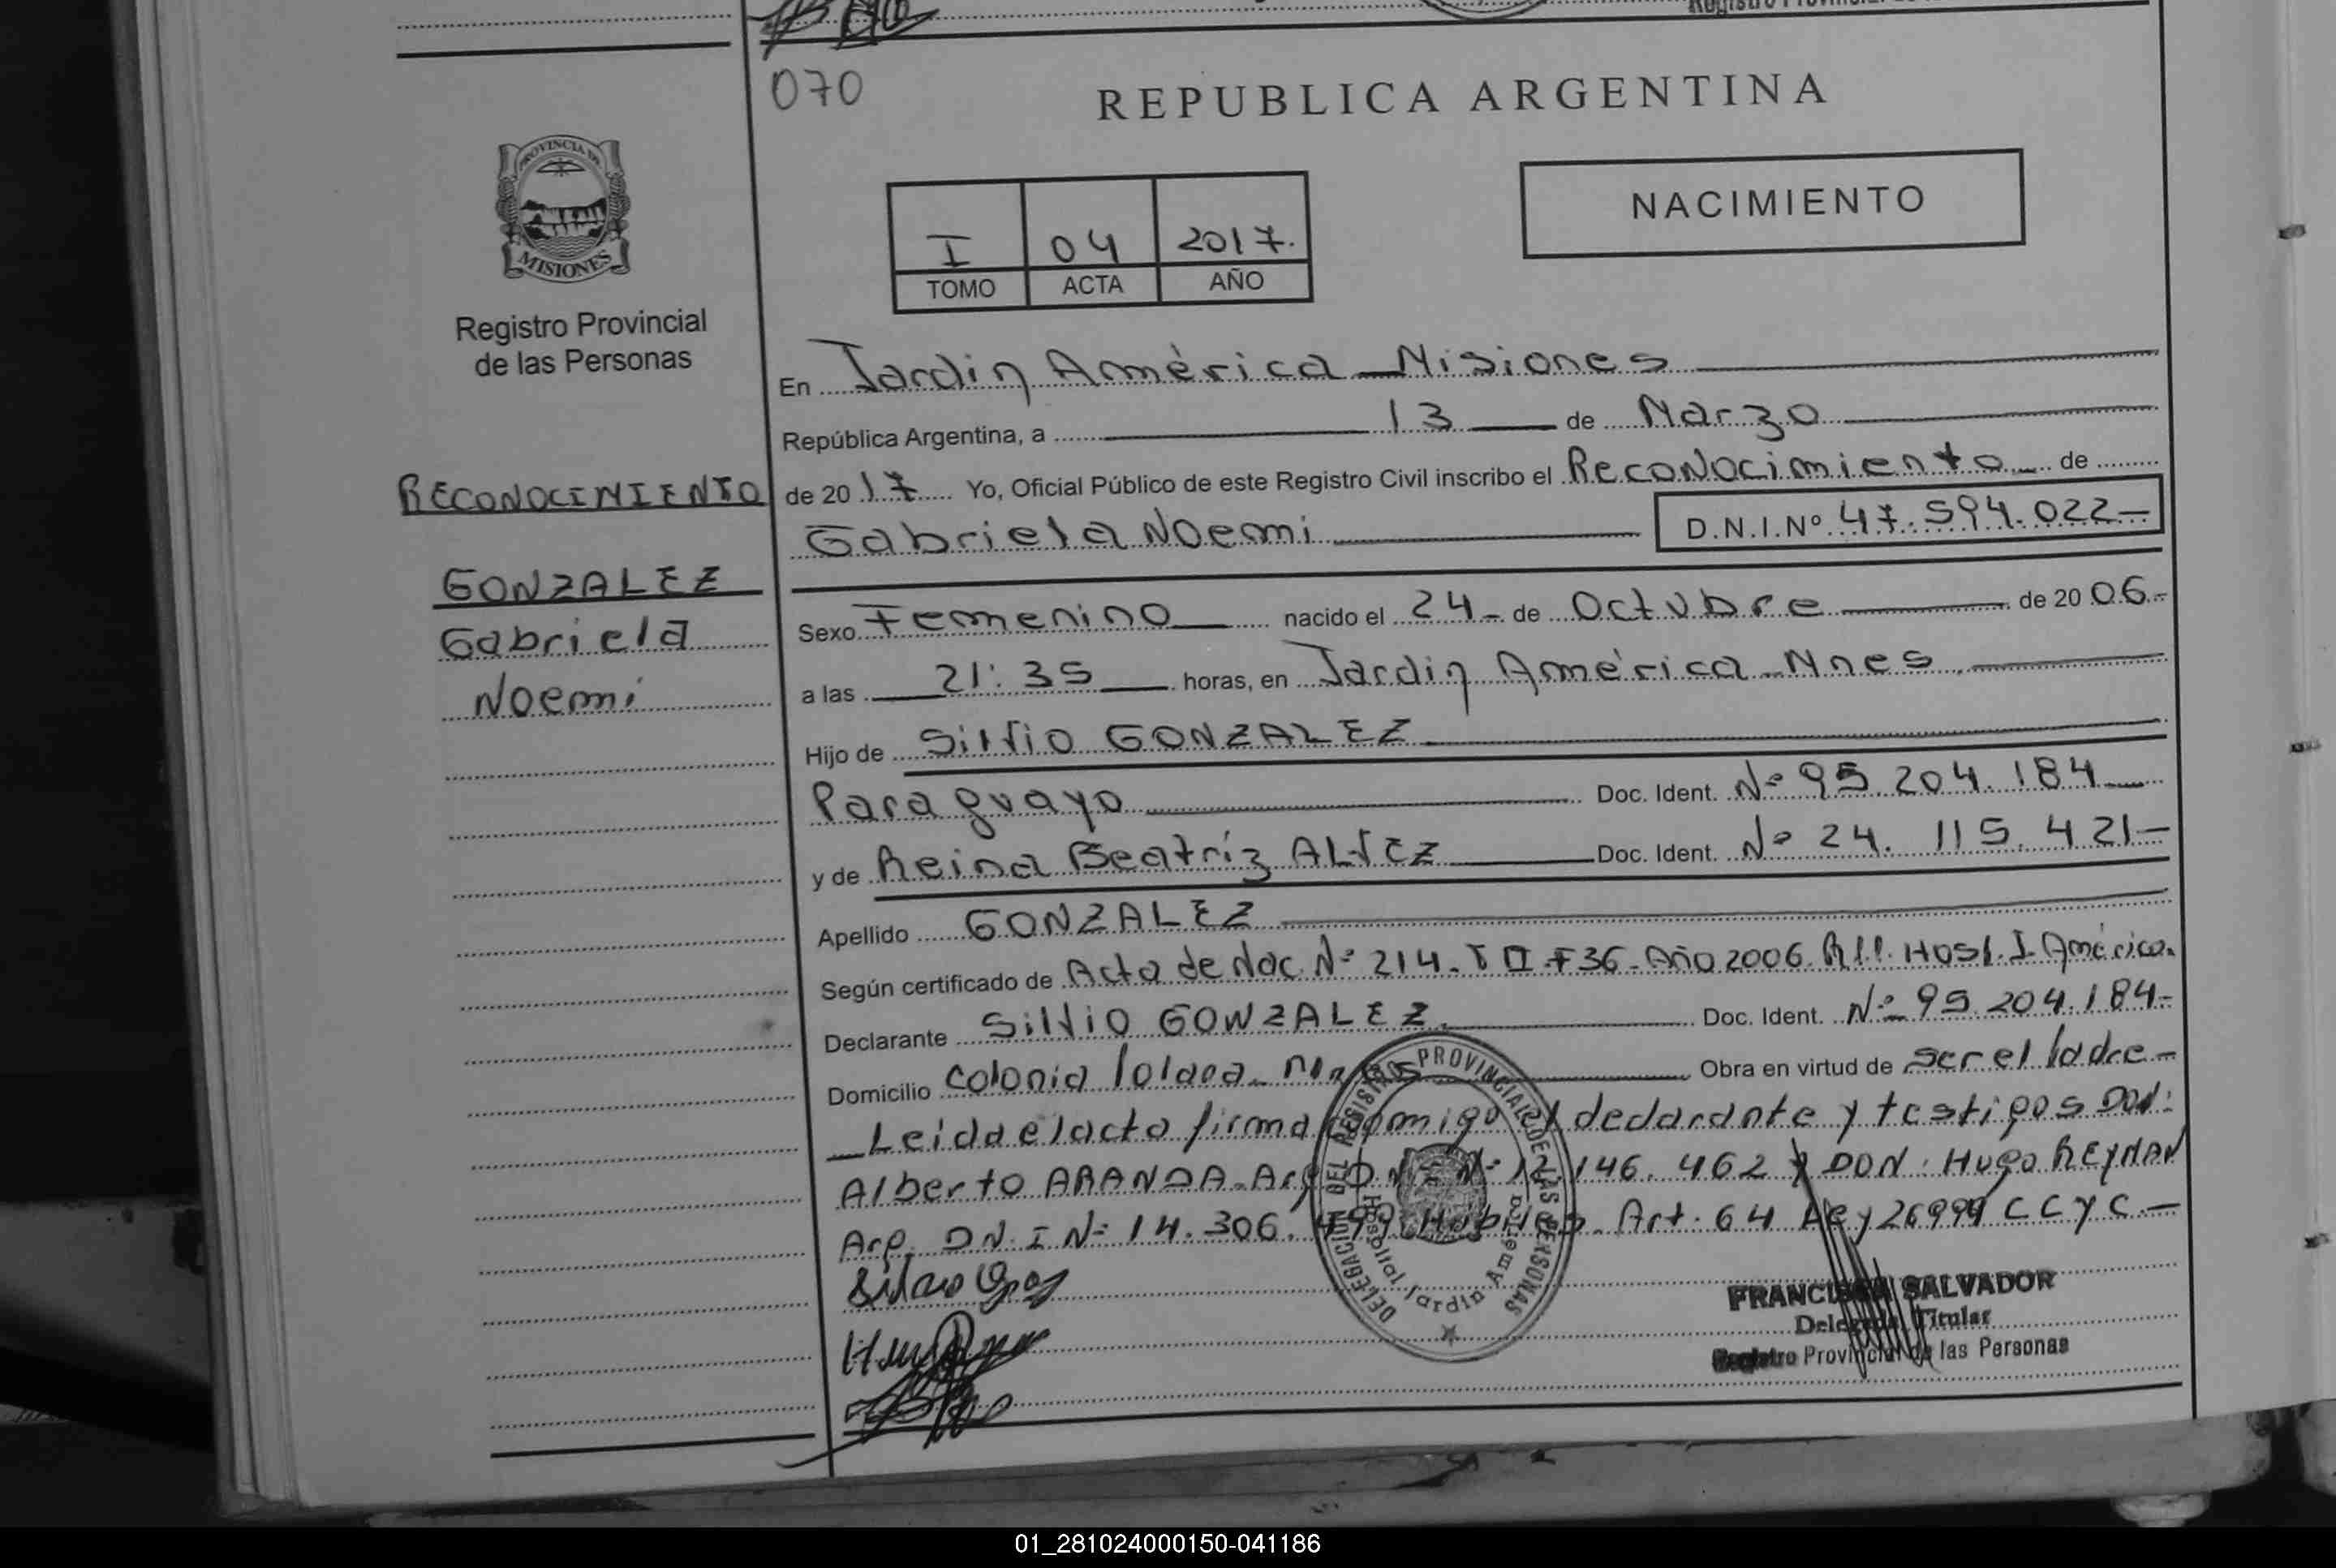 070
REPUBLICA ARGENTINA
NACIMIENTO
I 04 2017.
TOMO ACTA AÑO
PROVINCIA DE
MISIONES
Registro Provincial
de las Personas
En Jardin América - Misiones
República Argentina, a 13 de Marzo
RECONOCIMIENTO
de 20 17 Yo, Oficial Público de este Registro Civil inscribo el Reconocimiento de
Gabriela Noemi D.N.I.Nº 47.594.022-
GONZALEZ
Gabriela
Noemi
Sexo Femenino nacido el 24- de Octubre de 20 06.-
a las 21:35 horas, en Jardin América - Mnes
Hijo de Silvio GONZALEZ
Paraguayo Doc. Ident. Nº 95.204.184
y de Reina Beatríz ALVEZ Doc. Ident. Nº 24.115.421-
Apellido GONZALEZ
Según certificado de Acta de Nac. Nº 214. T II F36. Año 2006. Hosp. J América.
Declarante Silvio GONZALEZ. Doc. Ident. Nº 95.204.184-
Domicilio Colonia Obra en virtud de ser el Padre-
Leida el acta firma comigo el declarante y testigos DON:
Alberto ARANDA - Arg. D.N.I. Nº 12.146.462 y DON: Hugo REYMAN
Arg. D.N.I Nº 14.306. Habiles. Art. 64 Ley 26994 CCyC-
DELEGACION DEL REGISTRO PROVINCIAL DE LAS PERSONAS
Hospital Jardin América
FRANCISCA SALVADOR
Delegada Titular
Registro Provincial de las Personas
01_281024000150-041186